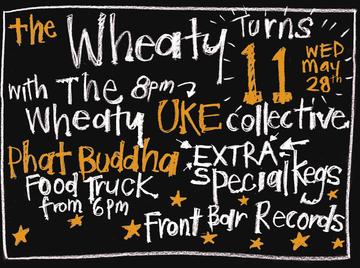 the Wheaty Turns 11
WED
May
28th
with The 8pm
Wheaty UKE collective
Phat Buddha
Food Truck
from 6pm
EXTRA
Special Kegs
Front Bar Records